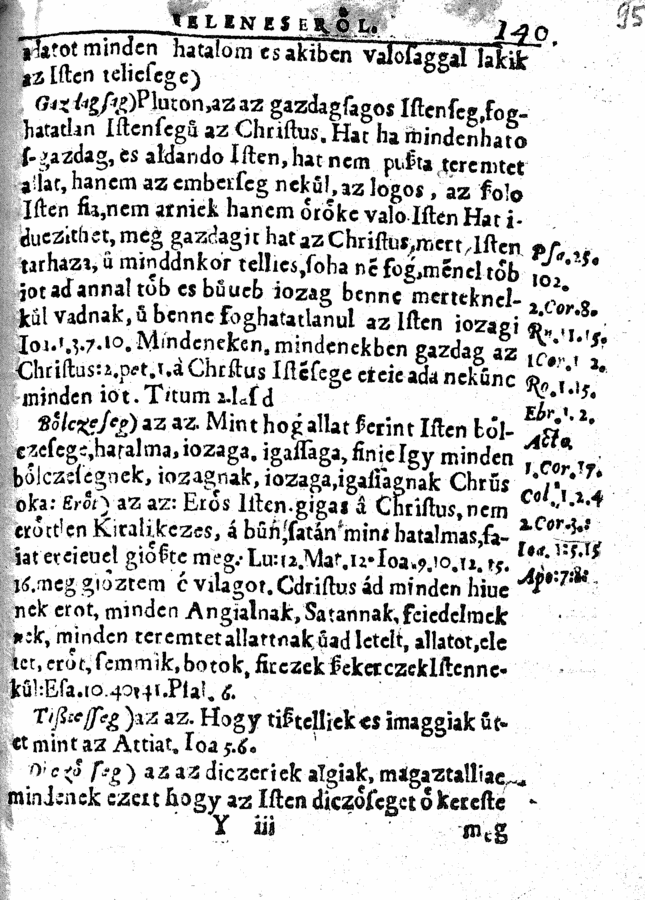 IELENESERŐL. 140. 95
adatot minden hatalom es akiben valosaggal lakik
az Isten teliesege)
Gazdagsag) Pluton, az az gazdagsagos Istenseg, fog-
hatatlan Istensegů az Christus. Hat ha mindenhato
s-gazdag, es aldando Isten, hat nem pußta teremtet
allat, hanem az emberseg nekůl, az logos, az folo
Isten fia, nem arniek hanem ŏrŏke valo Isten Hat i-
duezithet, meg gazdagit hat az Christus, mert, Isten
tarhaza, ů minddnkor tellies, soha nē fog, mēnel tŏb
jot ad annal tŏb es bůueb iozag benne merteknel-
kůl vadnak, ů benne foghatatlanul az Isten iozagi
Ioa. 1. 3. 7. 10. Mindeneken, mindenekben gazdag az
Christus: 2. pet. 1. à Chrstus Istēsege ereie ada nekůnc
minden iot. Titum 2.
Bŏlczeseg) az az. Mint hog allat ßerint Isten bŏl-
czesege, hatalma, iozaga, igassaga, finie Igy minden
bŏlczesegnek, iozagnak, iozaga, igassagnak Chrůs
oka: Erŏt) az az: Erŏs Isten. gigas â Christus, nem
erŏtt'en Kirali, kezes, á bůn, satán mint hatalmas, sa-
iat ereieuel giŏßte meg. Lu: 12. Mat. 12. Ioa. 9. 10. 12. 15.
16. meg gioztem é vilagot. Cdristus ád minden hiue
nek erot, minden Angialnak, Satannak, feiedelmek
nek, minden teremtet allattnak ůad letelt, allatot, ele
tet, erŏt, semmik, botok, firezek ßekerczek Istenne-
kůl: Esa. 10. 40. 41. Psal. 6.
Tißtesseg) az az. Hogy tißtelliek es imaggiak ůt-
et mint az Attiat. Ioa 5. 6.
Diczŏ seg) az az diczeriek algiak, magaztalliac
mindenek ezert hogy az Isten diczŏseget ŏ kereste
Y iii meg
Psa. 25.
102.
2. Cor. 8.
Ro. 11. 15.
1 Cor. 1 2.
Ro. 1. 15.
Ebr. 1. 2.
Acto
1. Cor. 17.
Col. 1. 2. 4
2. Cor. 3.:
Ioa. 1: 5. 15
Apo: 7: 8: